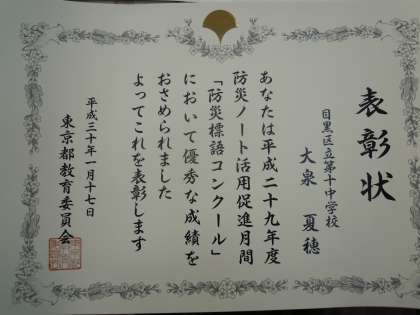 表彰状
目黒区立第十中学校
大泉 夏穂
あなたは平成二十九年度
防災ノート活用促進月間
「防災標語コンクール」
において優秀な成績を
おさめられました
よってこれを表彰します
平成三十年一月十七日
東京都教育委員会